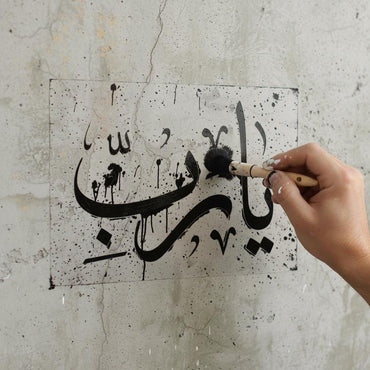 يا ربِّ